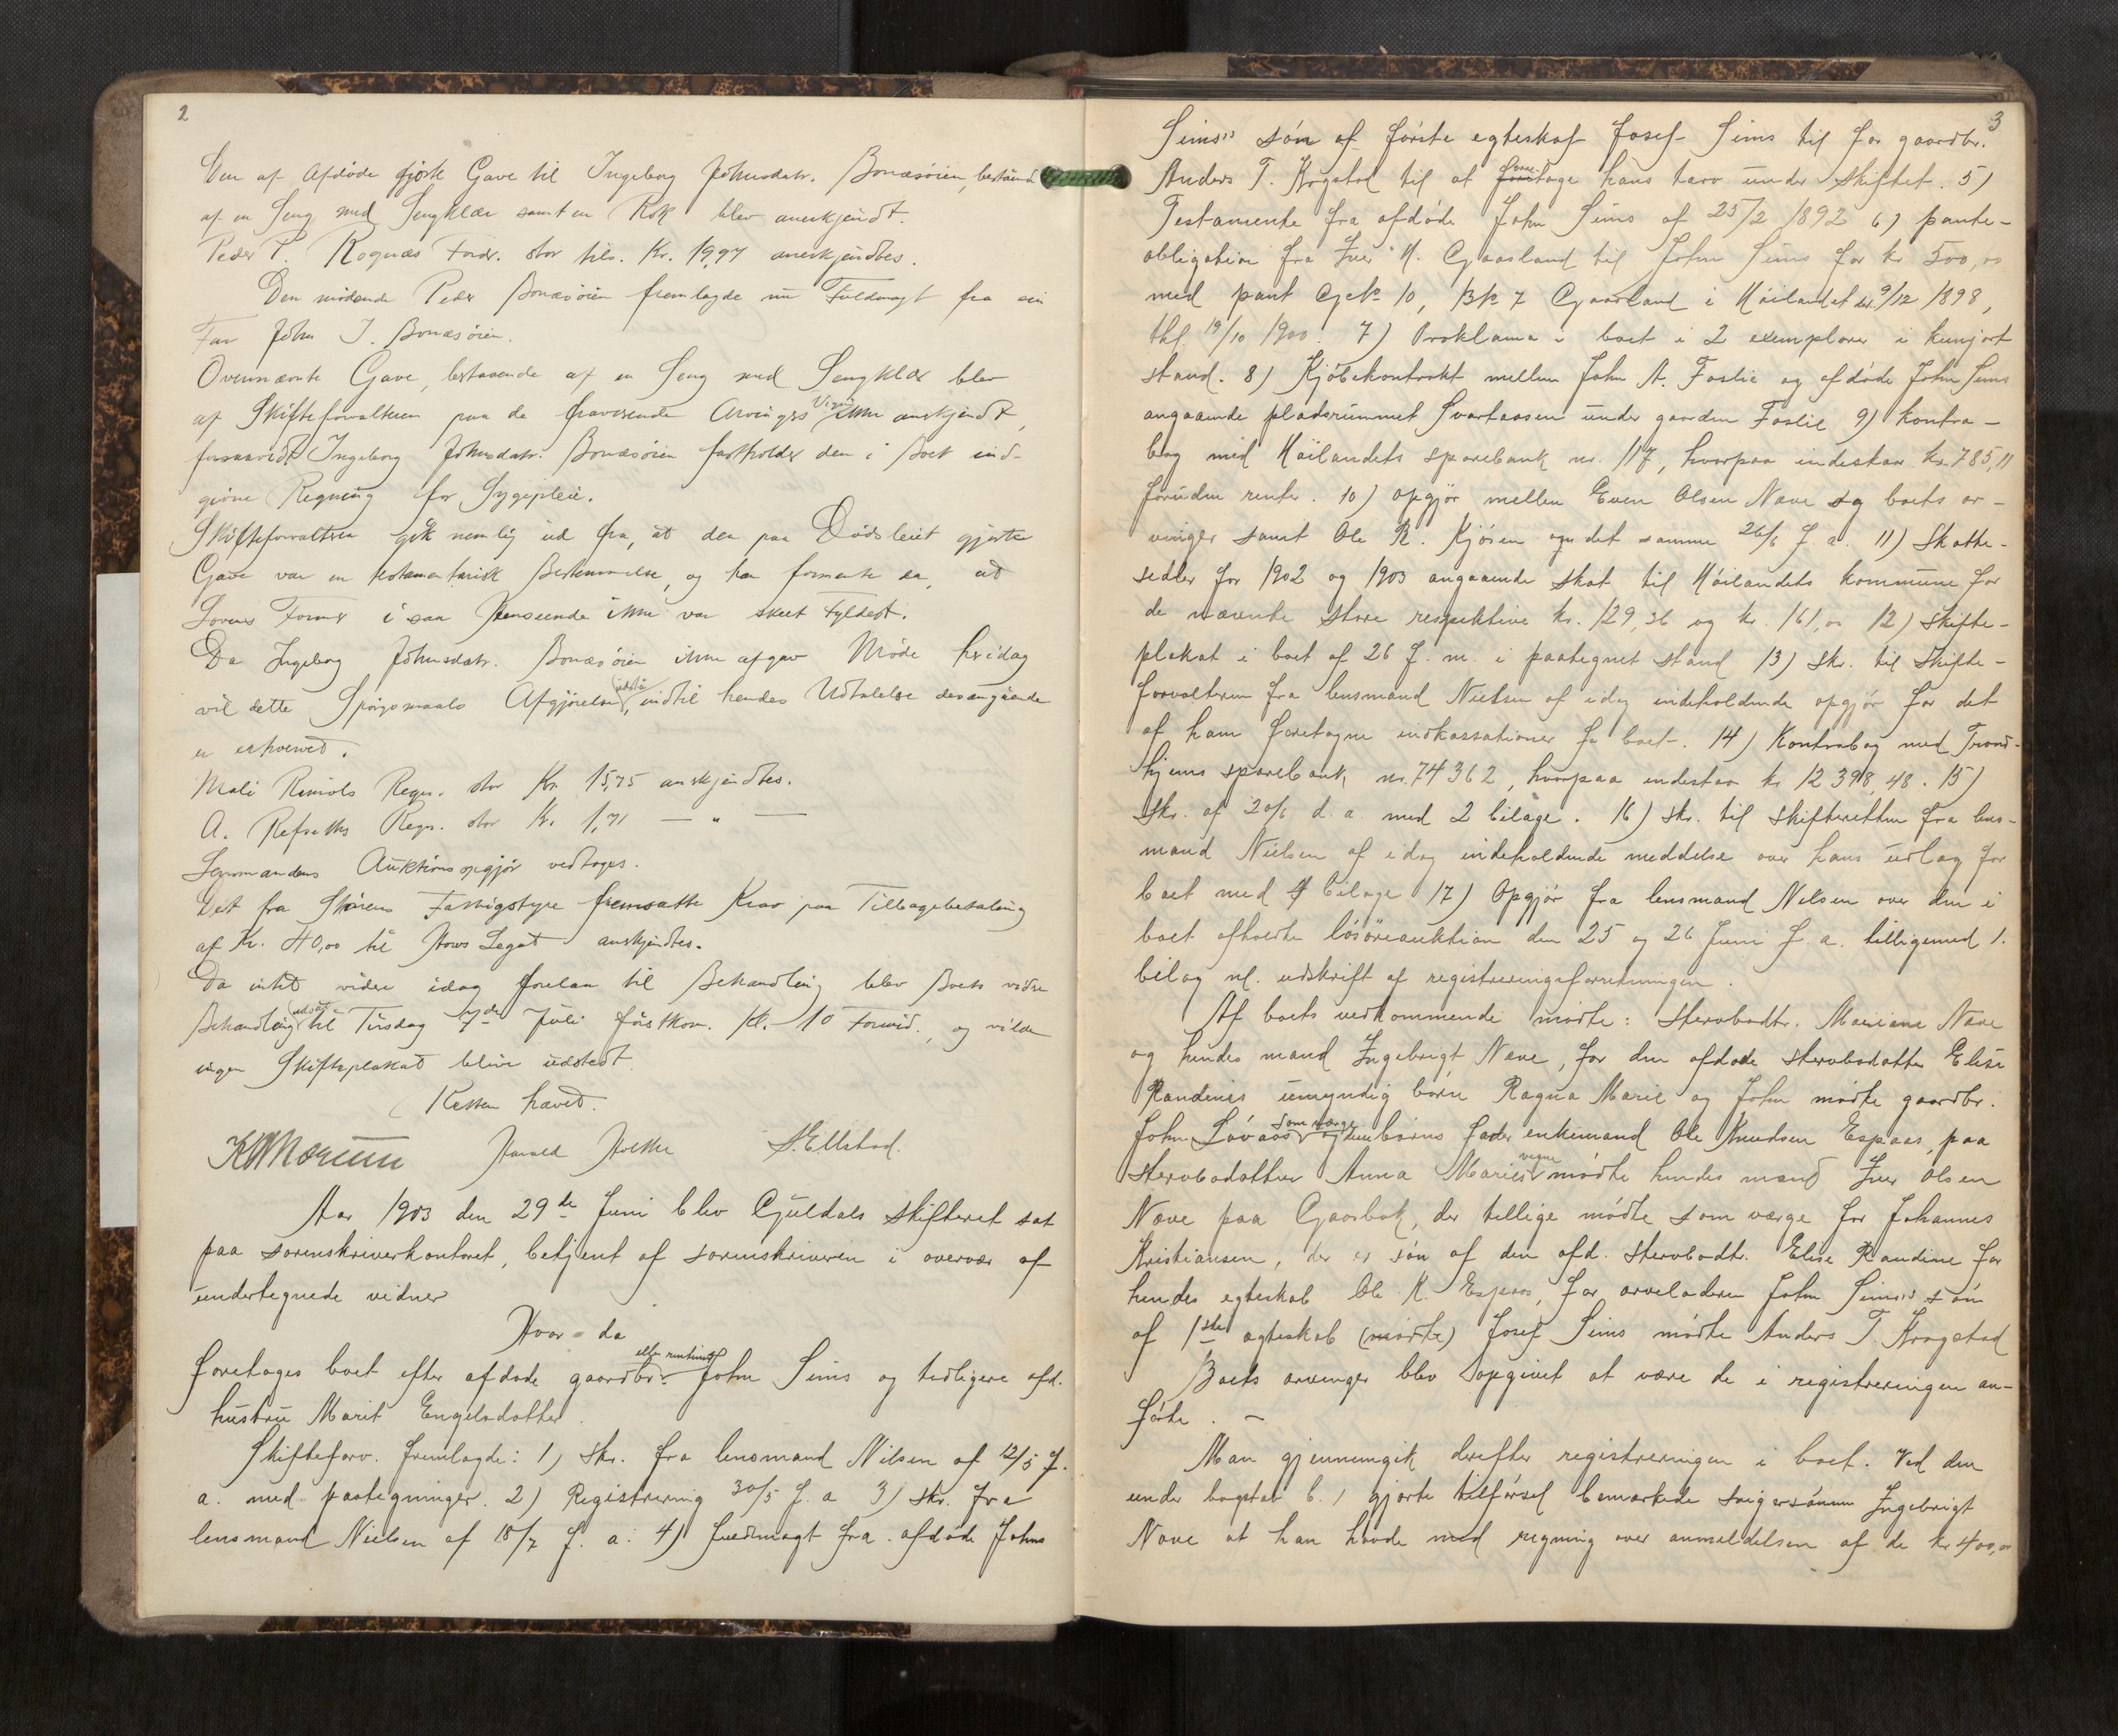 2
Den af Afdøde gjorte Gave til Ingeborg Johnsdatr. Bonæsøien, beståend
af en Seng med Sengklær samt en Rok blev anerkjendt.
Peder P. Rognæs Fordr. stor tils. Kr. 19,97 anerkjendtes.
Den mødende Peder Bonæsøien fremlagde nu Fuldmagt fra sin
Far John J. Bonæsøien.
Ovennævnte Gave, bestaaende af en Seng med Sengklær blev
af Skifteforvalteren paa de fraværende Arvinges Vegne ikke anerkjendt,
forsaavidt Ingeborg Johnsdatr. Bonæsøien fastholder den i Boet ind-
givne Regning for Sygepleie.
Skifteforvalteren gik nemlig ud fra, at den paa Dødsleiet gjorte
Gave var en testamentarisk Bestemmelse, og han formente da, at
Lovens Former i saa Henseende ikke var skeet Fyldest.
Da Ingeborg Johnsdatr. Bonæsøien ikke afgav Møde heridag
vil dette Spørgsmaals Afgjørelse udstå, indtil hendes Udtalelse desangående
er erhvervet.
Mali Rimols Regn. stor Kr. 15,75 anerkjendtes.
A. Refseths Regn. stor Kr. 1,71 — " —
Lensmandens Auktionsopgjør vedtoges.
Det fra Størens Fattigstyre fremsatte Krav paa Tilbagebetaling
af Kr. 40,00 til Hovs Legat anerkjendtes.
Da intet videre idag forelaa til Behandling blev Boets videre
Behandling udsat til Tirsdag 7de Juli førstkom. Kl. 10 Formid., og vilde
ingen Skifteplakat blive udstedt.
Retten hævet.
Harald S. Ellstad.
Aar 1903 den 29de Juni blev Guldals skifteret sat
paa sorenskriverkontoret, betjent af sorenskriveren i overvær af
undertegnede vidner
Hvor da
foretoges boet efter afdøde gaardbr. John Sims og tidligere afd.
hustru Marit Engelsdatter.
Skifteforv. fremlagde: 1) Skr. fra lensmand Nilsen af 12/5 f.
a. med paategninger. 2) Registrering 30/5 f. a 3) skr. fra
lensmand Nielsen af 18/7 f. a. 4) fuldmagt fra afdøde Johns
3
Sims's søn af første egteskab Josef Sims til for gaardbr.
Anders T. Krogstad til at foretage hans tarv under skiftet. 5)
Testamente fra afdøde John Sims af 25/2 1892 6) pante-
obligation fra Iver H. Gaasland til John Sims for kr 500,00
med pant G.No 10, B.No 7 Gaasland i Høilandet dt. 9/12 1898,
thl. 19/10 1900. 7) Proklama i boet i 2 exemplarer i kungjort
stand. 8) Kjøbekontrakt mellem John A. Foslie og afdøde John Sims
angaaende pladsrummet Svartaasen under gaarden Foslie 9) kontra-
bog med Høilandets sparebank nr. 117, hvorpaa indestaar kr. 785,11
foruden renter. 10) opgjør mellem Even Olsen Næve og boets ar-
vinger samt Ole R. Kjøsen om det samme 26/6 f. a. 11) Skatte-
sedler for 1902 og 1903 angaaende skat til Høilandets kommune for
de nævnte store respektive kr. 129,36 og kr. 161,00 12) Skifte-
plakat i boet af 26 f. m. i paategnet stand 13) Skr. til Skifte-
forvalteren fra lensmand Nielsen af idag indeholdende opgjør for det
af ham foretagne indkassationer for boet. 14) Kontrabog med Trond-
hjems sparebank nr. 74362, hvorpaa indestaar kr 12 398,48. 15)
Skr. af 20/6 d. a. med 2 bilage. 16) Skr. til skifteretten fra lens-
mand Nielsen af idag indeholdende meddelse over hans udlag for
boet med 4 bilage 17) Opgjør fra lensmand Nilsen over den i
boet afholdte løsøreauktion den 25 og 26 Juni f. a. tilligemed 1.
bilag nl. udskrift af registreringsforretningen.
Af boets vedkommende mødte: Stervbodtr. Mariane Næve
og hendes mand Ingebrigt Næve, for den afdøde stervbodatter Elise
Randines umyndig børn Ragna Marie og John mødte gaardbr.
John Løvaas som værge og børns fader enkemand Ole Knudsen Espaas, paa
stervbodatter Anna Maries vegne mødte hendes mand Iver Olsen
Næve paa Gaarbak, der tillige mødte som værge for Johannes
Kristiansen, der er søn af den afd. stervbodtr. Elise Randine før
hendes egteskab Ole K. Espaas, for arveladeren John Sims's søn
af 1ste egteskab (mødte) Josef Sims mødte Anders T. Krogstad
Boets arvinger blev opgivet at være de i registreringen an-
førte. —
Man gjennemgik derefter registreringen i boet. Ved den
under bogstab b. 1 gjorte tilførsel bemærkede svigersønnen Ingebrigt
Næve at han havde med regning over anmeldelsen af de kr 400,00